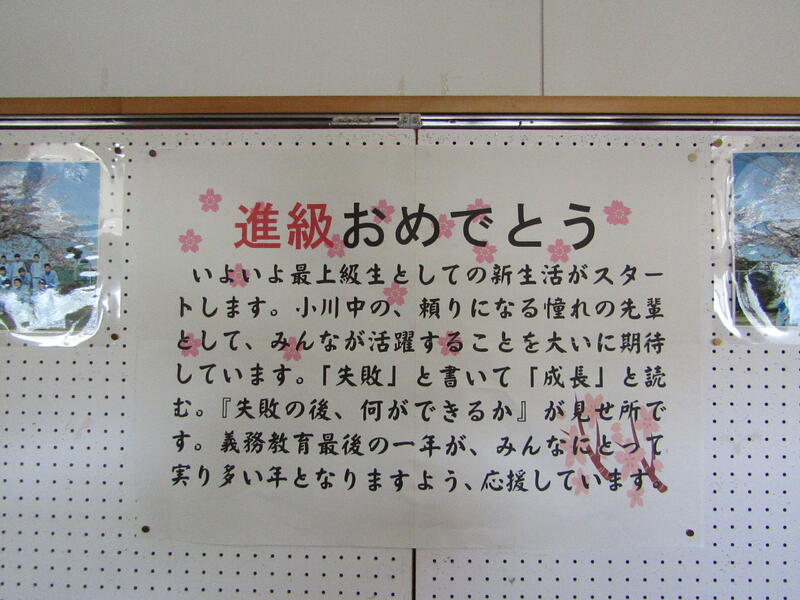 進級おめでとう
いよいよ最上級生としての新生活がスター
トします。小川中の、頼りになる憧れの先輩
として、みんなが活躍することを大いに期待
しています。「失敗」と書いて「成長」と読
む。『失敗の後、何ができるか』が見せ所で
す。義務教育最後の一年が、みんなにとって
実り多い年となりますよう、応援しています。